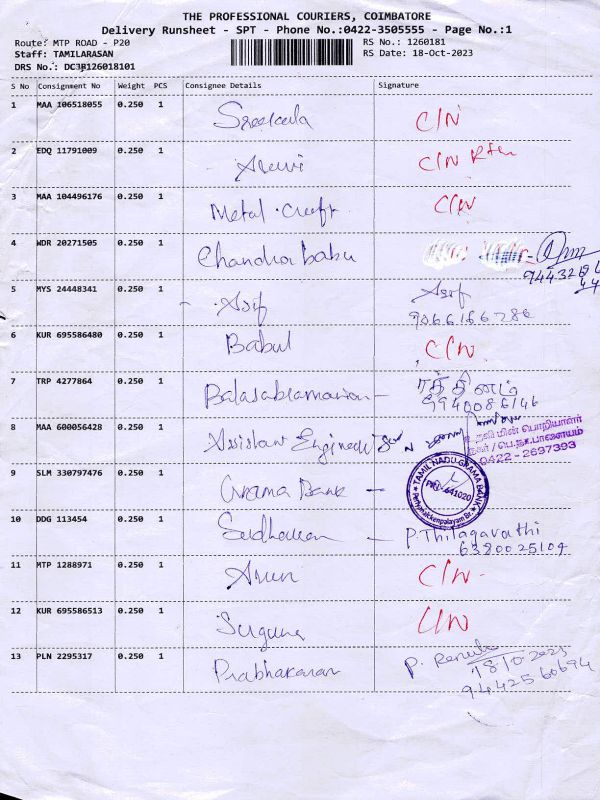 THE PROFESSIONAL COURIERS, COIMBATORE
Delivery Runsheet - SPT - Phone No.:0422-3505555 - Page No.:1
Route: MTP ROAD - P20
Staff: TAMILARASAN
DRS No.: DC3P126018101
RS No.: 1260181
RS Date: 18-Oct-2023
S No Consignment No Weight PCS Consignee Details Signature
1 MAA 106518055 0.250 1 Sreekala C/N
2 EDQ 11791009 0.250 1 C/N
3 MAA 104496176 0.250 1 Metal Craft C/N
4 WDR 20271505 0.250 1 Chandra babu
5 MYS 24448341 0.250 1 Asif Asif
9066166286
6 KUR 695586480 0.250 1 Babul C/N
7 TRP 4277864 0.250 1 Balasabramanian ரத்தினம்
9940086146
8 MAA 600056428 0.250 1 Assistant Engineer
உதவி மின் பொறியாளர்
நகர் / பெ.நா.பாளையம்
0422 - 2697393
9 SLM 330797476 0.250 1 Grama Bank
TAMIL NADU GRAMA BANK
641020
10 DDG 113454 0.250 1 P. Thilagavathi
6380025109
11 MTP 1288971 0.250 1 Arun C/N
12 KUR 695586513 0.250 1 Suguna C/N
13 PLN 2295317 0.250 1 Prabhakaran P. Renuka
9442560694